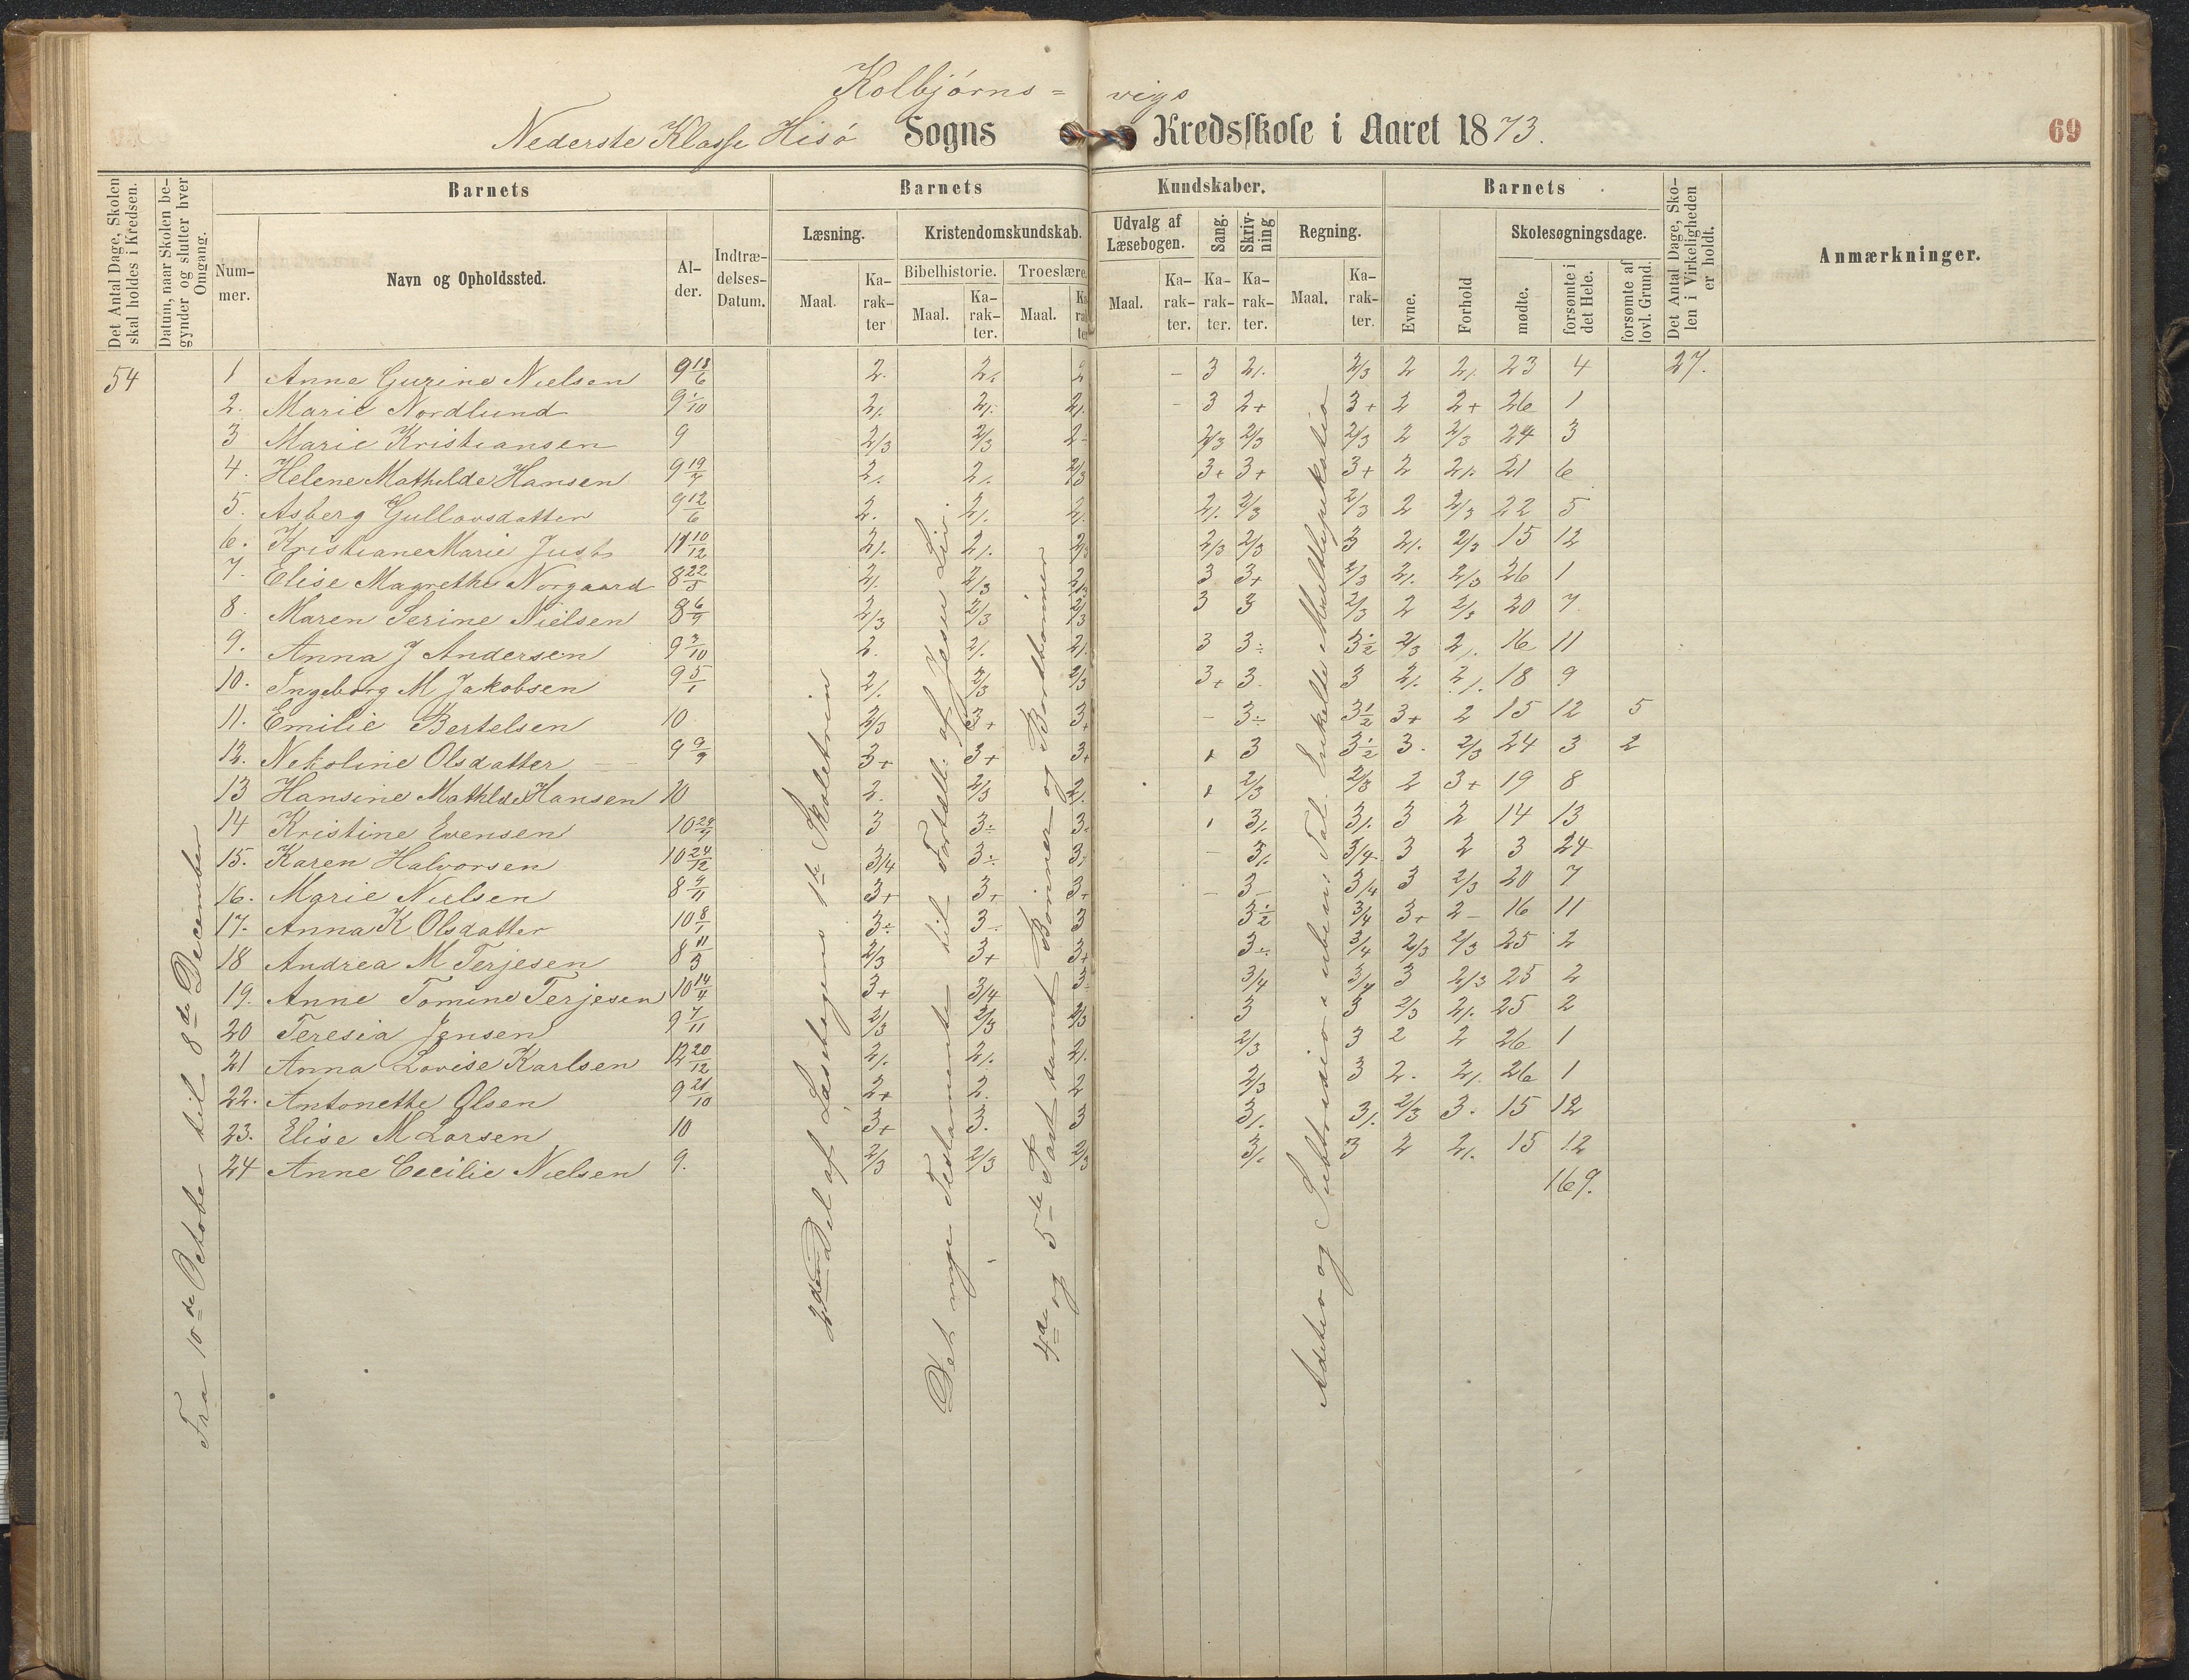 Kolbjørns= vigs
Nederste Klasse Hisø Sogns Kredsskole i Aaret 1873.
69
Det Antal Dage, Skolen skal holdes i Kredsen.
Datum, naar Skolen begynder og slutter hver Omgang.
Barnets
Nummer.
Navn og Opholdssted.
Alder.
Indtrædelses-Datum.
Barnets Kundskaber.
Læsning.
Maal.
Karakter
Kristendomskundskab.
Bibelhistorie.
Maal.
Karakter.
Troeslære.
Maal.
Karakter
Udvalg af Læsebogen.
Maal.
Karakter.
Sang.
Karakter.
Skrivning
Karakter.
Regning.
Maal.
Karakter.
Barnets
Evne.
Forhold
Skolesøgningsdage.
mødte.
forsømte i det Hele.
forsømte af lovl. Grund.
Det Antal Dage, Skolen i Virkeligheden er holdt.
Anmærkninger.
54
1 Anne Gurine Nielsen 9 18/6 2. 2. 2 - 3 2/. 2/3 2 2/. 23 4 27.
2. Marie Nordlund 9 1/10 2/. 2/. 2/. - 3 2+ 3+ 2 2+ 26 1
3 Marie Kristiansen 9 2/3 2/3 2- 2/3 2/3 2/3 2 2/3 24 3
4. Helene Mathilde Hansen 2/. 2/. 2/3 3+ 3+ 3+ 2 2/. 21 6
5. Asberg Gullovsdatter 9 12/6 2. 2/. 2/. 2/. 2/3 2/3 2 2/3 22 5
6. Kristiane Marie Just 11 10/12 2/. 2/. 2/3 2/3 2/3 3 2/. 2/3 15 12
7. Elise Magrethe Norgaard 8 22/5 2/. 2/3 2/3 3 3+ 2/3 2/. 2/3 26 1
8. Maren Serine Nielsen 8 6/9 2/3 2/3 2/3 3 3 2/3 2 2/3 20 7
9. Anna J Andersen 9 3/10 2. 2/. 2/. 3 3÷ 3½ 2/3 2/. 16 11
10. Ingeborg M Jakobsen 9 5/1 2/. 2/3 2/3 3+ 3. 3 2/. 2/. 18 9
11. Emilie Bertelsen 10 2/3 3+ 3+ - 3÷ 3½ 3+ 2 15 12 5
12. Nekoline Olsdatter 9 9/9 3+ 3+ 3+ 3 3½ 3. 2/3 24 3 2
13 Hansine Mathilde Hansen 10 2. 2/3 2/. 2/3 2/3 2 3+ 19 8
14 Kristine Evensen 3 3÷ 3÷ 3/. 3/. 3 2 14 13
15. Karen Halvorsen 10 24/12 3/4 3÷ 3/. - 3/. 3/4 3 2 3 24
16. Marie Nielsen 8 9/11 3+ 3+ 3+ - 3- 3/4 3 2/3 20 7
17. Anna K Olsdatter 10 8/1 3÷ 3÷ 3 3½ 3/4 3+ 2- 16 11
18 Andrea M Terjesen 8 11/3 2/3 3+ 3+ 3÷ 3/4 2/3 2/3 25 2
19. Anne Tomine Terjesen 10 14/4 3+ 3/4 3÷ 3/4 3/4 3 2/3 25 2
20 Teresia Jensen 9 7/11 2/3 2/3 2/3 3 3 2/3 2/. 25 2
21 Anna Lovise Karlsen 12 20/12 2/. 2/. 2/. 2/3 3 2 2 26 1
22. Antonette Olsen 9 21/10 2+ 2. 2 2/3 3 2. 2/. 26 1
23. Elise M Larsen 10 3+ 3. 3 3/. 3/. 2/3 3. 15 12
24 Anne Cecilie Nielsen 9. 2/3 2/3 2/3 3/. 3 2 2/. 15 12
169.
Fra 10de October til 8de December
2den Del af Læsebogens 1te Skoletrin
Det nye Testamente til Fortæll. af Jesu Liv.
4de og 5te Part samt Bønner og Bordbønner
Addition og Subtraktion i ubein. Tal. Enkelte Multiplikation